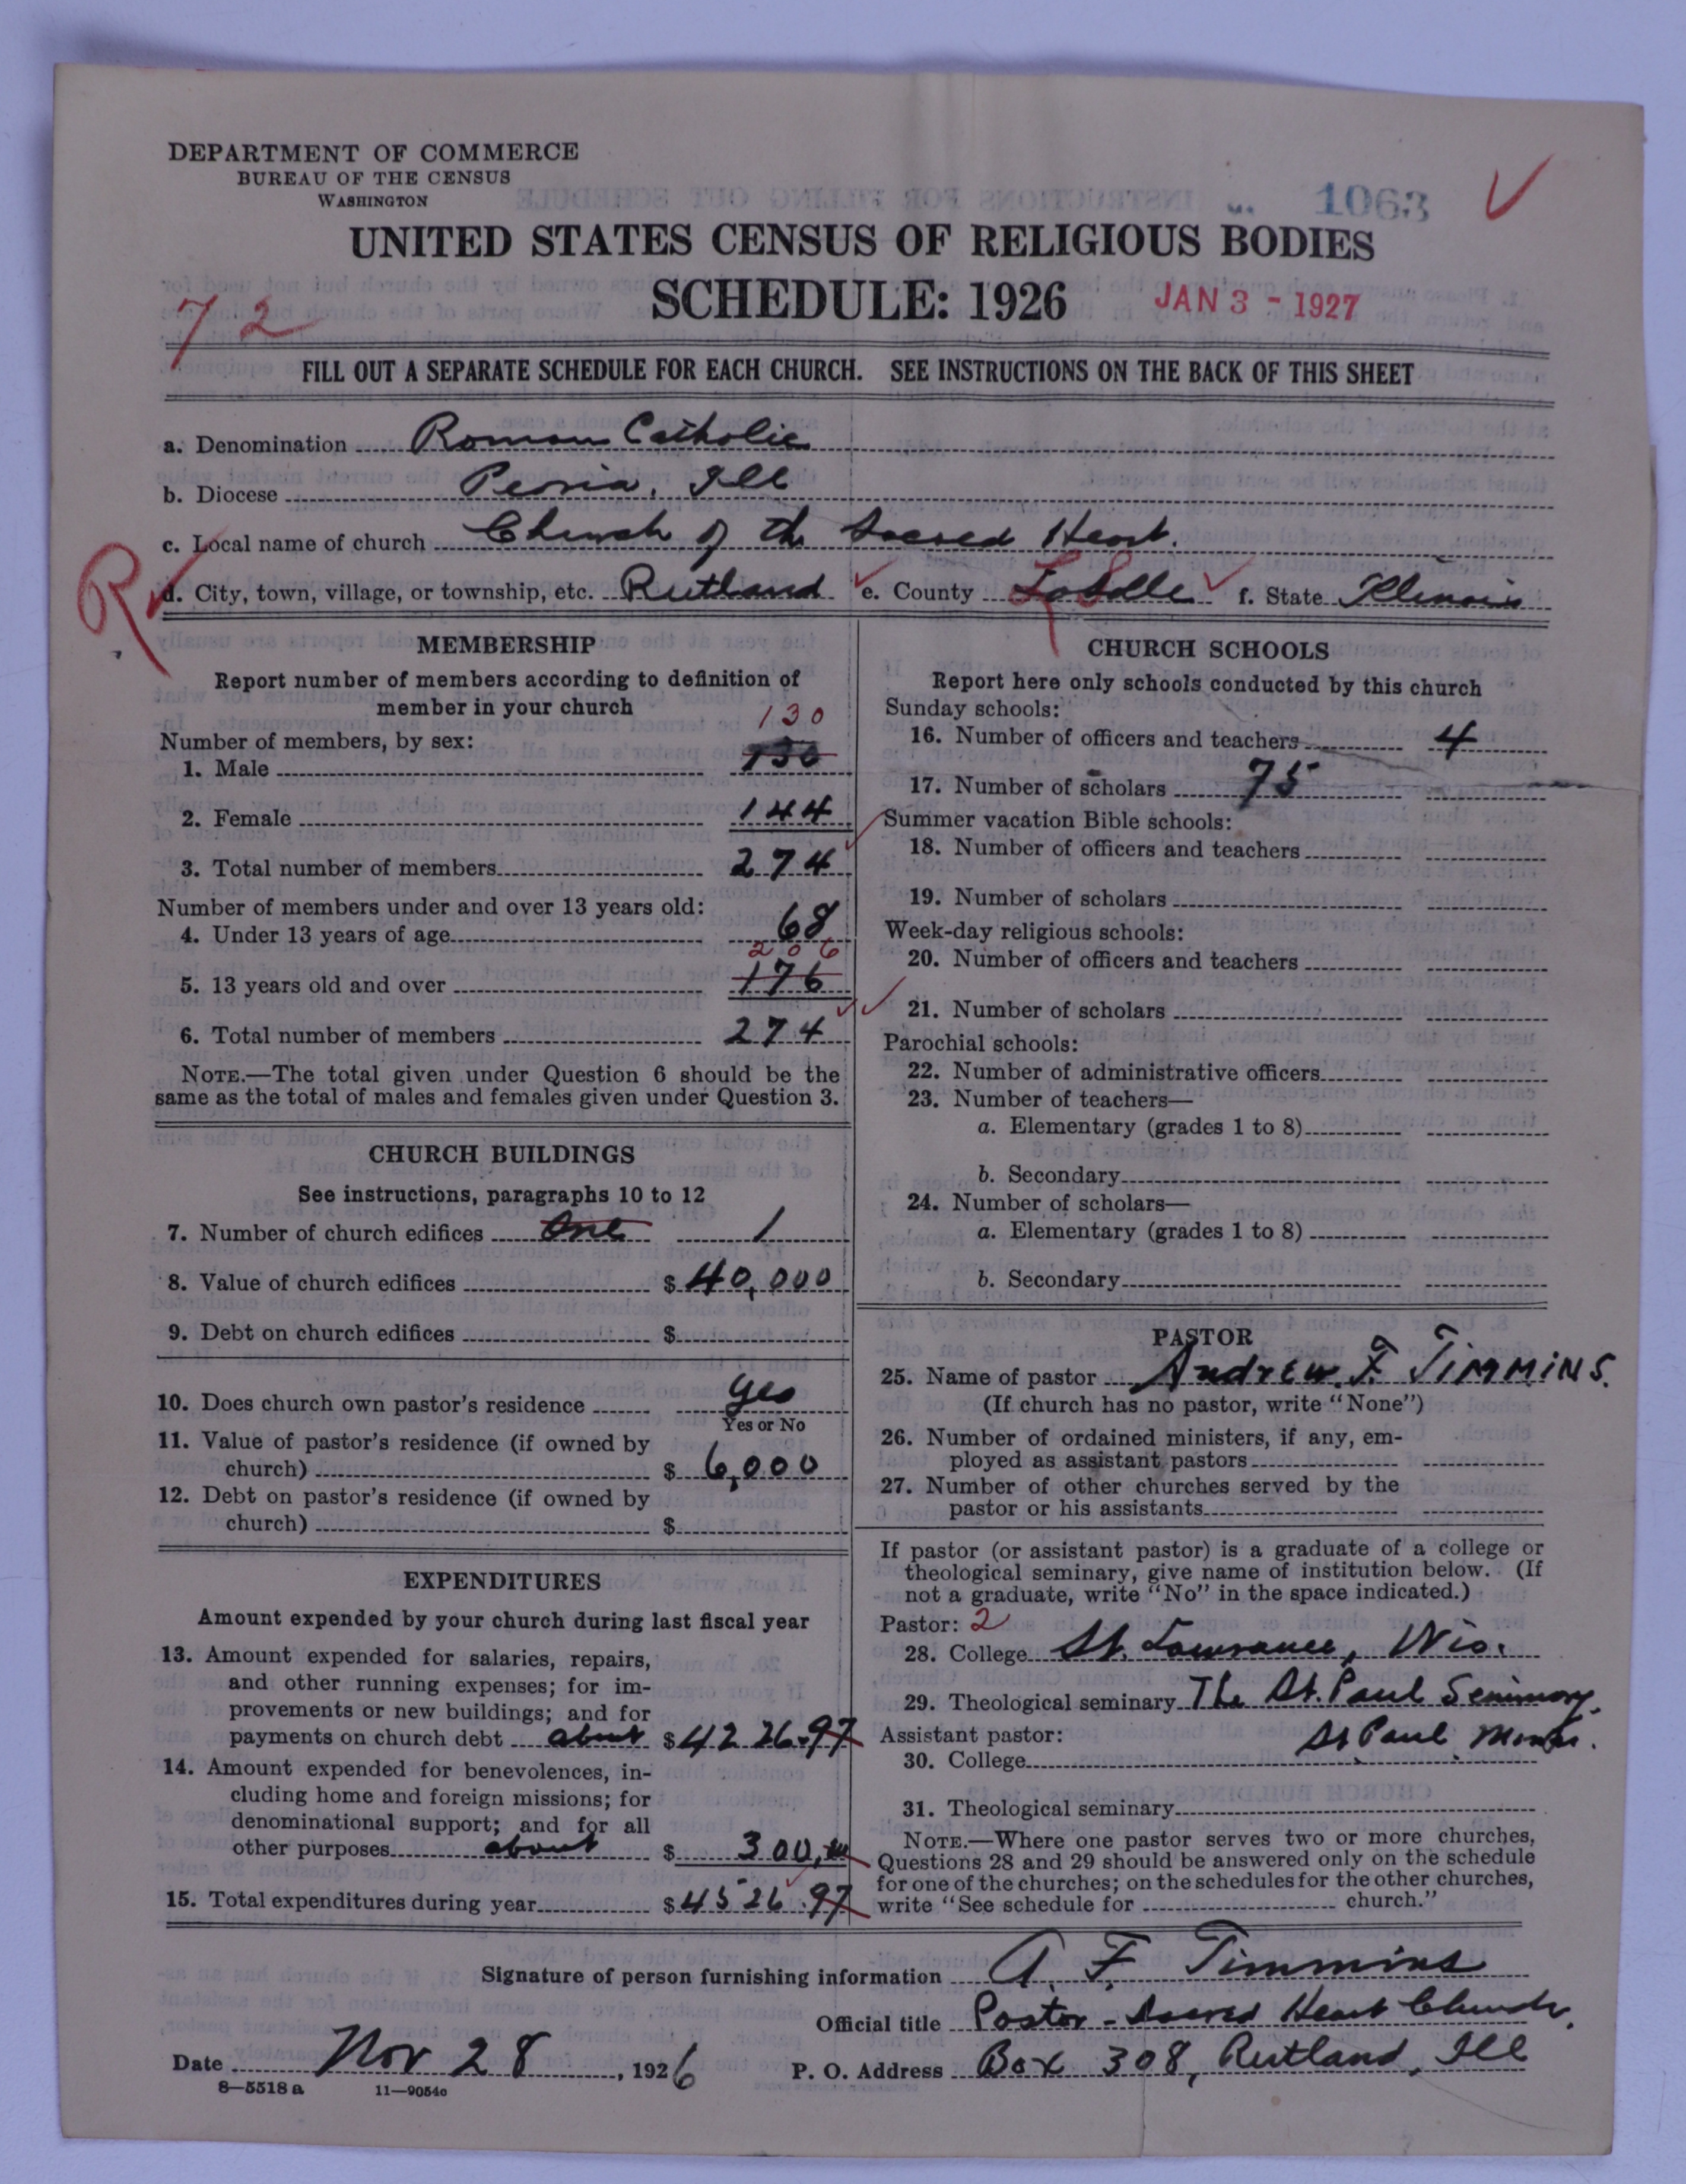 DEPARTMENT OF COMMERCE
BUREAU OF THE CENSUS
WASHINGTON
1063
UNITED STATES CENSUS OF RELIGIOUS BODIES
SCHEDULE: 1926
JAN 3 - 1927
72
FILL OUT A SEPARATE SCHEDULE FOR EACH CHURCH. SEE INSTRUCTIONS ON THE BACK OF THIS SHEET
a. Denomination Roman Catholic
b. Diocese Peoria, Ill
c. Local name of church Church of the Sacred Heart.
R
d. City, town, village, or township, etc. Rutland e. County LaSalle f. State Illinois
MEMBERSHIP
Report number of members according to definition of
member in your church
130
Number of members, by sex:
1. Male 130
2. Female 144
3. Total number of members 274
Number of members under and over 13 years old:
4. Under 13 years of age 68
206
5. 13 years old and over 176
6. Total number of members 274
NOTE.—The total given under Question 6 should be the
same as the total of males and females given under Question 3.
CHURCH BUILDINGS
See instructions, paragraphs 10 to 12
7. Number of church edifices One 1
8. Value of church edifices $ 40,000
9. Debt on church edifices $
10. Does church own pastor's residence yes
Yes or No
11. Value of pastor's residence (if owned by
church) $ 6,000
12. Debt on pastor's residence (if owned by
church) $
EXPENDITURES
Amount expended by your church during last fiscal year
13. Amount expended for salaries, repairs,
and other running expenses; for im-
provements or new buildings; and for
payments on church debt about $ 4226.97
14. Amount expended for benevolences, in-
cluding home and foreign missions; for
denominational support; and for all
other purposes about $ 300.00
15. Total expenditures during year $ 4526.97
CHURCH SCHOOLS
Report here only schools conducted by this church
Sunday schools:
16. Number of officers and teachers 4
17. Number of scholars 75
Summer vacation Bible schools:
18. Number of officers and teachers
19. Number of scholars
Week-day religious schools:
20. Number of officers and teachers
21. Number of scholars
Parochial schools:
22. Number of administrative officers
23. Number of teachers—
a. Elementary (grades 1 to 8)
b. Secondary
24. Number of scholars—
a. Elementary (grades 1 to 8)
b. Secondary
PASTOR
25. Name of pastor Andrew. F. TIMMINS.
(If church has no pastor, write "None")
26. Number of ordained ministers, if any, em-
ployed as assistant pastors
27. Number of other churches served by the
pastor or his assistants
If pastor (or assistant pastor) is a graduate of a college or
theological seminary, give name of institution below. (If
not a graduate, write "No" in the space indicated.)
Pastor: 2
28. College St. Lawrance, Wis.
29. Theological seminary The St. Paul Seminary.
Assistant pastor: St Paul Minn.
30. College
31. Theological seminary
NOTE.—Where one pastor serves two or more churches,
Questions 28 and 29 should be answered only on the schedule
for one of the churches; on the schedules for the other churches,
write "See schedule for church."
Signature of person furnishing information A. F. Timmins
Official title Pastor - Sacred Heart Church.
Date Nov 28, 1926 P. O. Address Box 308, Rutland, Ill
8—5518 a 11—9054c